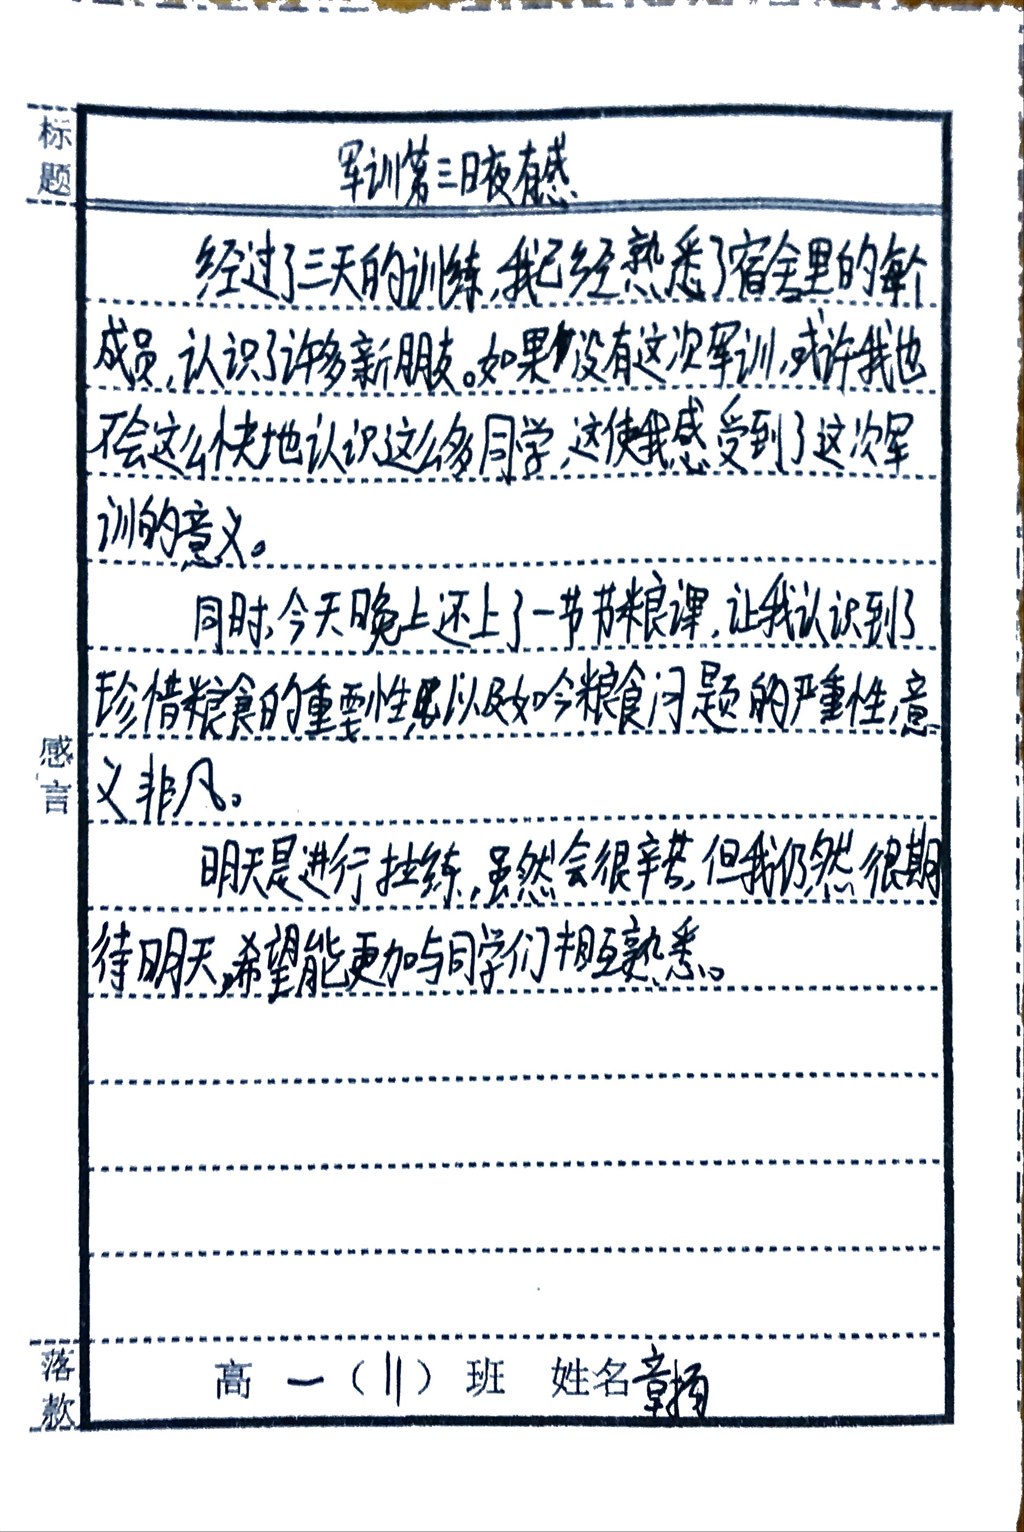 标题
军训第三日夜有感
经过了三天的训练,我已经熟悉了宿舍里的每个
成员,认识了许多新朋友。如果没有这次军训,或许我也
不会这么快地认识这么多同学,这使我感受到了这次军
训的意义。
同时,今天晚上还上了一节节粮课,让我认识到了
珍惜粮食的重要性,以及如今粮食问题的严重性,意
义非凡。
感言
明天是进行拉练,虽然会很辛苦,但我仍然很期
待明天,希望能更加与同学们相互熟悉。
落款
高一(11)班 姓名章